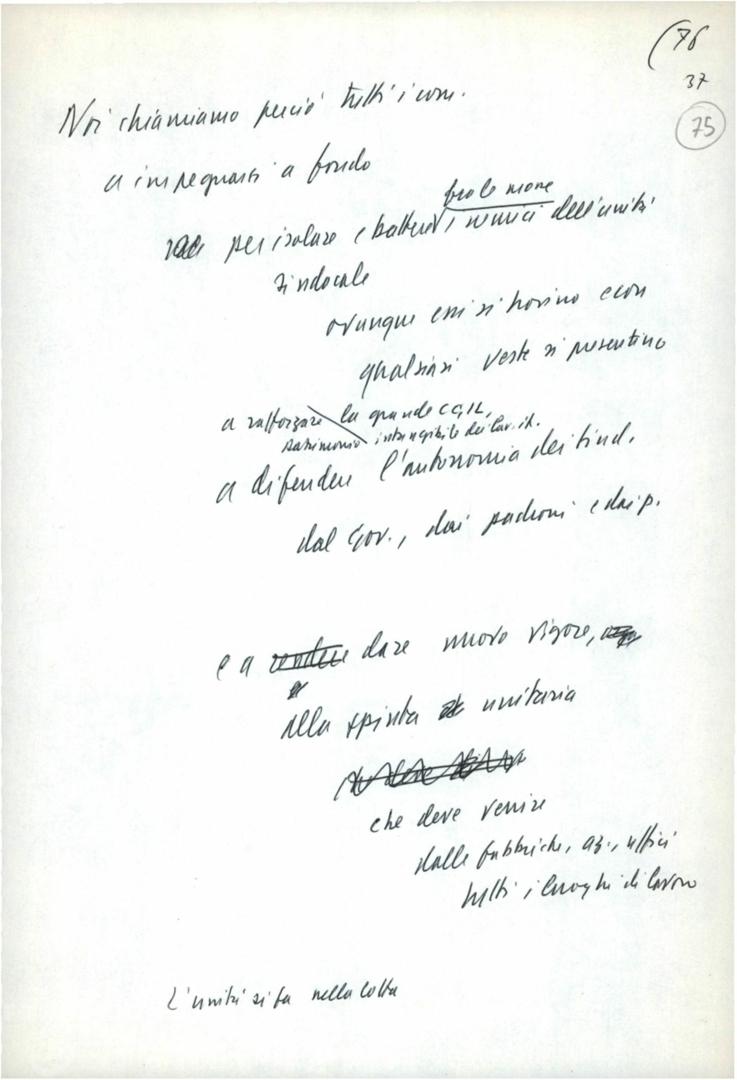 (76
37
75
Noi chiamiamo perciò tutti i com.
a impegnarsi a fondo
fra le masse
per isolare e battere i nemici dell'unità
sindacale
ovunque essi si trovino e con
qualsiasi veste si presentino
a rafforzare la grande CGIL,
patrimonio intangibile dei lav. it.
a difendere l'autonomia dei sind.
dal Gov., dai padroni e dai p.
e a rendere dare nuovo vigore,
alla spinta unitaria
che deve venire
dalle fabbriche, az., uffici
tutti i luoghi di lavoro
L'unità si fa nella lotta